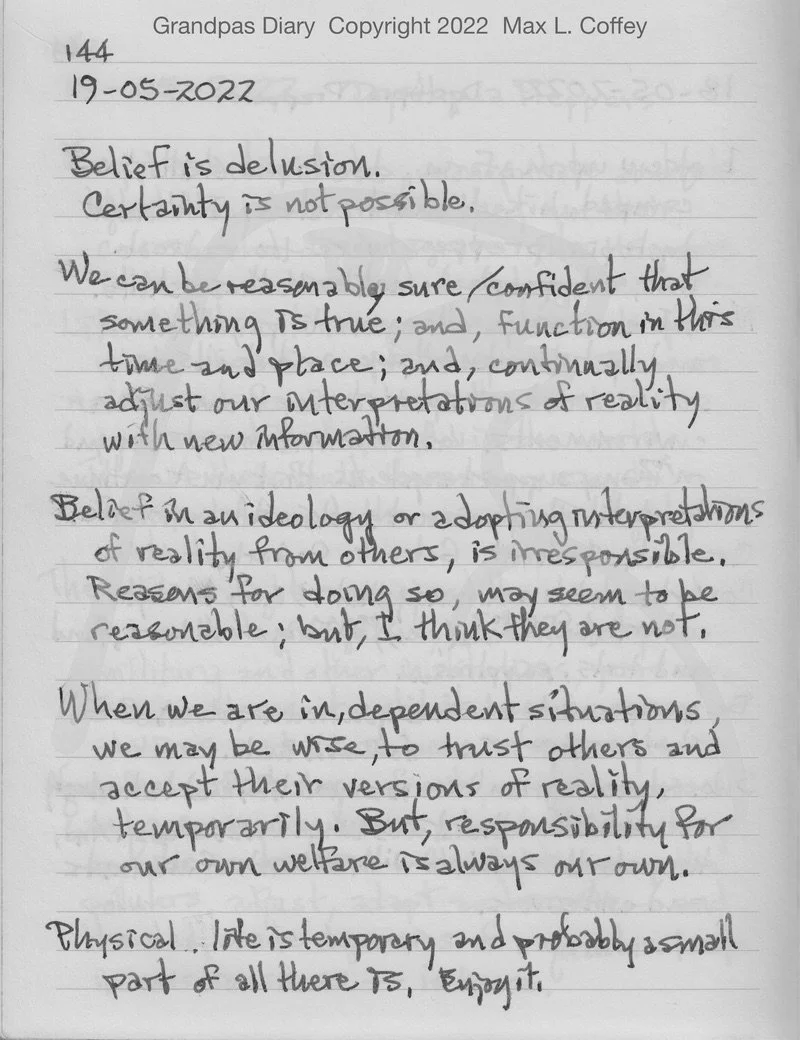 Grandpas Diary Copyright 2022 Max L. Coffey
144
19-05-2022
Belief is delusion.
Certainty is not possible.
We can be reasonably sure/confident that
something is true; and, function in this
time and place; and, continually
adjust our interpretations of reality
with new information.
Belief in an ideology or adopting interpretations
of reality from others, is irresponsible.
Reasons for doing so, may seem to be
reasonable; but, I think they are not.
When we are in, dependent situations,
we may be wise, to trust others and
accept their versions of reality,
temporarily. But, responsibility for
our own welfare is always our own.
Physical.. life is temporary and probably a small
part of all there is. Enjoy it.